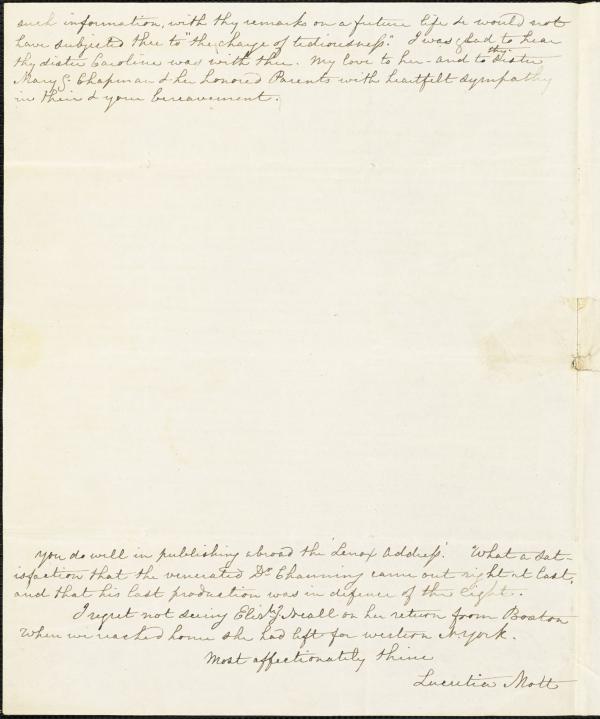 such information, with thy remarks on a future life &c would not
have subjected thee to "the charge of tediousness." I was glad to hear
thy sister Caroline was with thee. My love to her - and to thy Sister
Mary G. Chapman & her honored Parents with heartfelt sympathy
in their & your bereavement.
You do well in publishing abroad the 'Lenox Address'. What a sat-
isfaction that the venerated Dr. Channing came out right at last,
and that his last production was in defence of the right.
I regret not seeing Elizh. J. Neall on her return from Boston
When we reached home she had left for western N York.
Most affectionately thine
Lucretia Mott